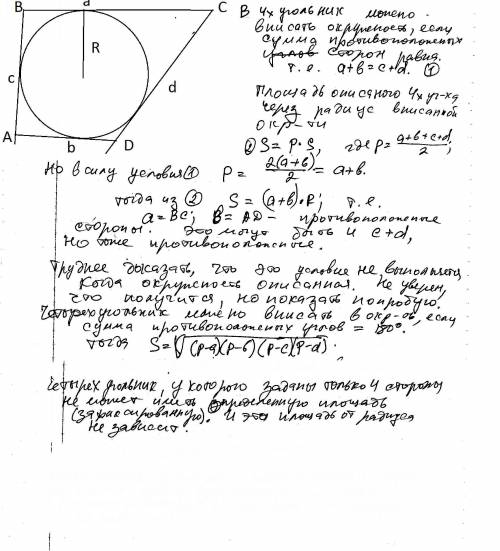 B a C
R
c
d
A b D
В 4х угольник можно
вписать окружность, если
сумма противоположных
углов сторон равна.
т.е. a+b=c+d. ①
Площадь описаного 4х уг-ка
через радиус вписанной
окр-ти
② S= P·S, где P= a+b+c+d/2;
Но в силу условия ① P= 2(a+b)/2 = a+b.
тогда из ② S=(a+b)·R; т.е.
a=BC; B=AD - противоположные
стороны. Это могут быть и c+d,
но тоже противоположные.
Труднее доказать, что это условие не выполняется,
когда окружность описанная. Не уверен,
что получится, но показать попробую.
Четырехугольник можно вписать в окр-ть, если
сумма противоположных углов = 180°.
тогда S=√(p-a)(p-b)(p-c)(p-d).
Четырех угольник, у которого заданы только 4 стороны
не может иметь определенную площадь
(зафиксированную). И эта площадь от радиуса
не зависит.